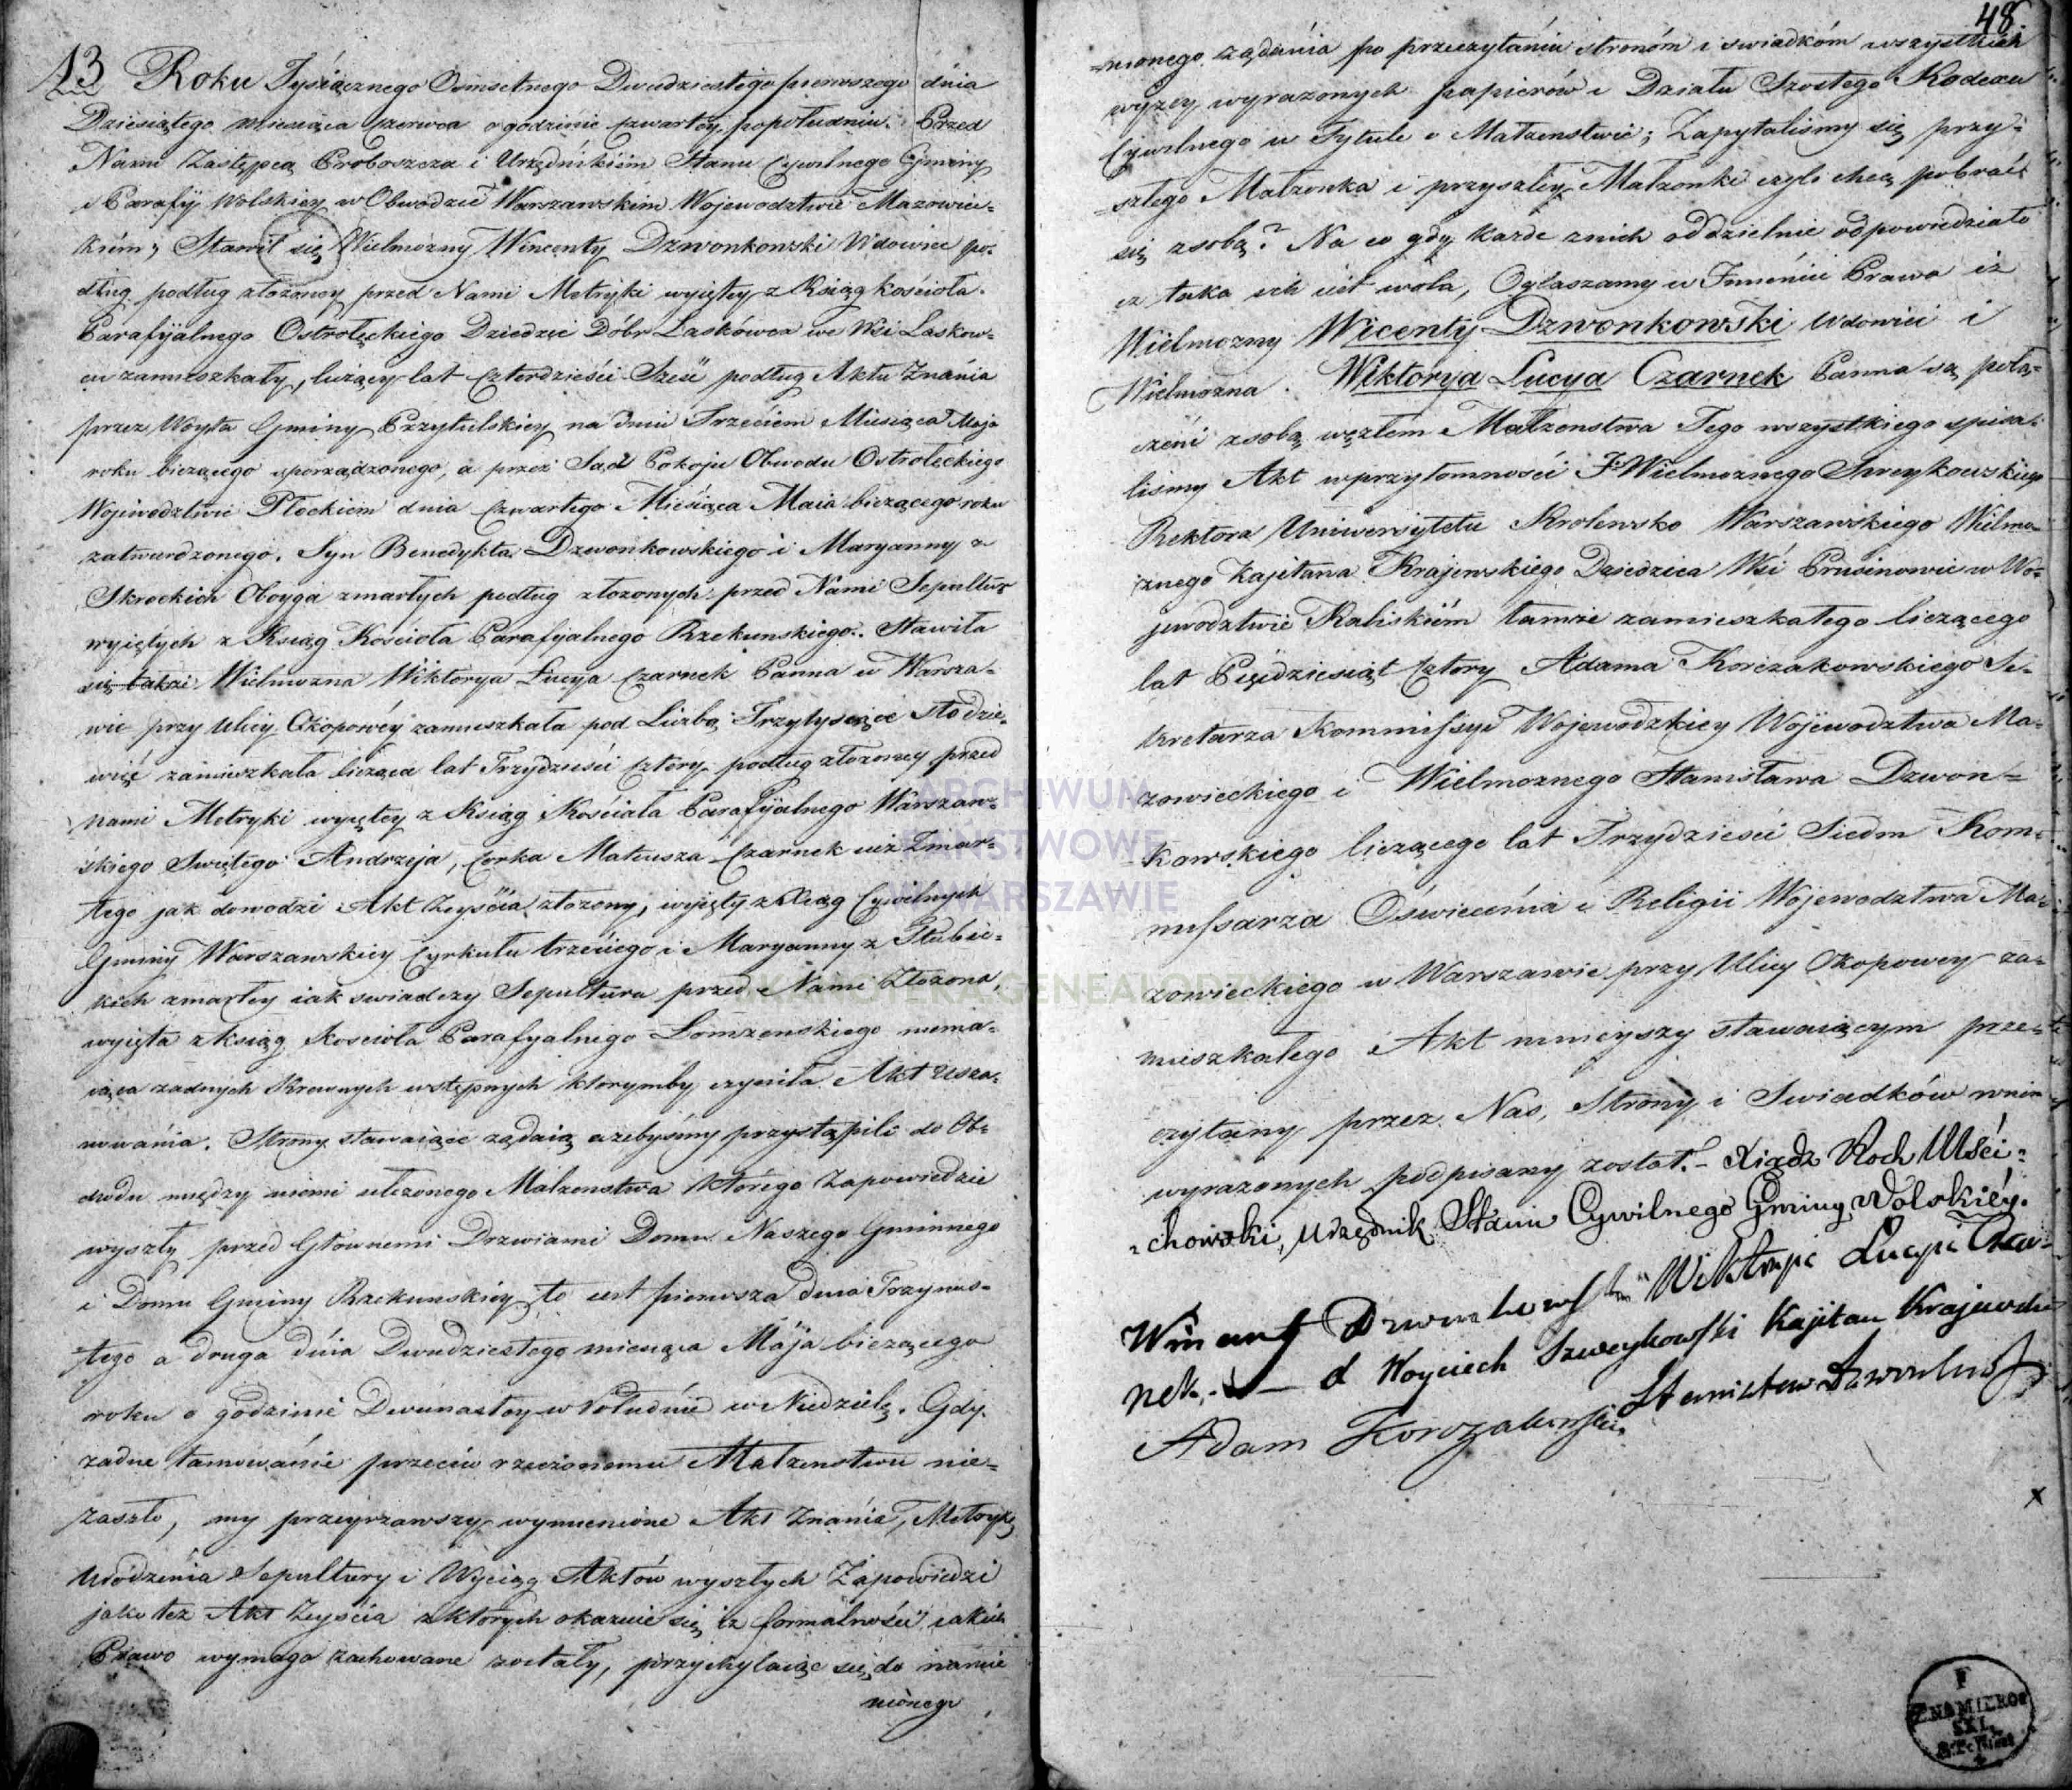 13 Roku Tysiącznego Osmsetnego Dwudziestego pierwszego dnia
Dziesiątego miesiąca Czerwca o godzinie czwartey popołudniu. Przed
Nami Zastępcą Proboszcza i Urzędnikiem Stanu Cywilnego Gminy
i Parafij Wolskiey w Obwodzie Warszawskim Wojewodztwie Mazowiec=
kim, Stawił się Wielmożny Wincenty Dzwonkowski Wdowiec po=
dług podług złożoney przed Nami Metryki wyiętey z Ksiąg kościoła
Parafijalnego Ostrołęckiego Dziedzic Dóbr Laskówca we Wsi Laskow=
cu zamieszkały, liczący lat Czterdzieści Sześć podług Aktu Znania
przez Wóyta Gminy Przytulskiey na dniu Trzecim Miesiąca Maja
roku bieżącego sporządzonego, a przez Sąd Pokoju Obwodu Ostrołęckiego
Wojewodztwie Płockiem dnia Czwartego Miesiąca Maia bieżącego roku
zatwierdzonego. Syn Benedykta Dzwonkowskiego i Maryanny z
Skrockich Oboyga zmarłych podług złożonych przed Nami Sepultur
wyiętych z Ksiąg Kościoła Parafijalnego Rzekunskiego. Stawiła
się także Wielmożna Wiktorya Lucya Czarnek Panna w Warsza=
wie przy ulicy Okopowéy zamieszkała pod Liczbą Trzytysiące Sto dzie=
więć zamieszkała licząca lat Trzydzieści Cztery podług złożoney przed
Nami Metryki wyiętey z Ksiąg Kościoła Parafijalnego Warszaw=
skiego Swiętego Andrzeja, Corka Mateusza Czarnek iuż Zmar=
łego jak dowodzi Akt Zeyścia złożony, wyięty z Xiąg Cywilnych
Gminy Warszawskiey Cyrkułu trzeciego i Maryanny z Głubic=
kich zmarłey iak swiadczy Sepultura przed Nami Złożona,
wyięta z ksiąg Kościoła Parafyalnego Łomżenskiego niema=
iąca żadnych Krewnych wstępnych którymby czyniła Akt Usza=
nowania. Strony stawaiące żądaią ażebyśmy przystąpili do Ob=
chodu między niemi ułożonego Małżenstwa którego Zapowiedzie
wyszły przed Głownemi Drzwiami Domu Naszego Gminnego
i Domu Gminy Rzekunskiéy to iest pierwsza dnia Trzynas=
tego a druga dnia Dwudziestego miesiąca Maja bieżącego
roku o godzinie Dwunastey w Południe w Niedzielę. Gdy
żadne tamowánie przeciw rzeczonemu Małżenstwu nie=
zaszło, my przeyrzawszy wymienione Akt Znania, Metryki
Urodzenia Sepultury i Wyciąg Aktów wyszłych Zapowiedzi
jako też Akt Zeyścia z których okazuie się iż formalności iakich
Prawo wymaga zachowane zostały, przychylaiąc się do namie
nionego
48.
=nionego żądania po przeczytániu stronóm i swiadkóm wszystkich
wyżey wyrażonych papierów i Działu Szostego Kodexu
Cywilnego w Tytule o Małżenstwie; Zapytalismy się przy=
=szłego Małżonka i przyszłey Małżonki czyli chcą pobrać
się zsobą? Na co gdy każde znich oddzielnie odpowiedziało
iż taka ich iest wola, Ogłaszamy w Jmieniu Prawa iż
Wielmożny Wicenty Dzwonkowski Wdowiec i
Wielmożna Wiktorya Lucya Czarnek Panna są połą=
czeni zsobą węzłem Małżenstwa Tego wszystkiego spisa=
lismy Akt wprzytomności J: Wielmożnego Szweykowskiego
Rektora Uniwersytetu Krolewsko Warszawskiego Wielmo=
żnego Kapitana Krajewskiego Dziedzica Wsi Prusinowic w Wo=
jewodztwie Kaliskiém tamże zamieszkałego liczącego
lat Pięćdziesiąt Cztery Adama Korczakowskiego Se=
kretarza Kommissyi Wojewodzkiey Wojewodztwa Ma=
zowieckiego i Wielmożnego Stanisława Dzwon=
kowskiego liczącego lat Trzydzieści Siedm Kom=
missarza Oświecenia i Religii Wojewodztwa Ma=
zowieckiego w Warszawie przy Ulicy Okopowey za=
mieszkałego Akt ninieyszy stawaiącym prze=
czytany przez Nas, Strony i Swiadków wnim
wyrażonych podpisany został. – Xiądz Roch Mści=
=chowski, Urzędnik Stanu Cywilnego Gminy Wolskiéy.
Wincenty Dzwonkowski Wiktorya Lucya Czar=
nek. – Woyciech Szweykowski Kapitan Krajewski
Adam Korczakowski Stanisław Dzwonkowski
ARCHIWUM
PAŃSTWOWE
W WARSZAWIE
SKANOTEKA.GENEALODZY.PL